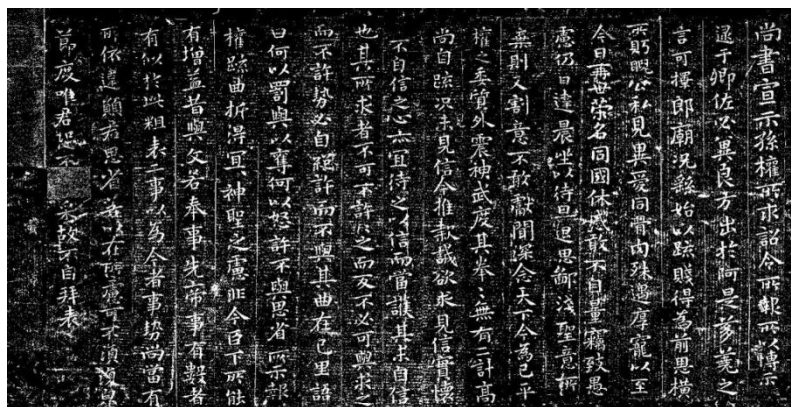 尚書宣示孫權所求詔令所報所以博示
逮于卿佐必冀良方出於阿是芻蕘之
言可擇郎廟況繇始以疏賤得為前恩橫
所眄睨公私見異愛同骨肉殊遇厚寵以至
今日再世榮名同國休慼敢不自量竊致愚
慮仍日達晨坐以待旦退思鄙淺聖意所
棄則又割意不敢獻聞深念天下今為已平
權之委質外震神武度其拳々無有二計高
尚自疏況未見信今推款誠欲求見信實懷
不自信之心亦宜待之以信而當護其未自信
也其所求者不可不許々之而反不必可與求之
而不許勢必自絕許而不與其曲在己里語
曰何以罰與以奪何以怒許不與思省所示報
權疏曲折得宜々神聖之慮非今臣下所能
有增益昔與文若奉事先帝事有數者
有似於此粗表二事以為今者事勢尚當有
所依違願君思省若以在所慮可不須復
節度唯君恐不采故不自拜表